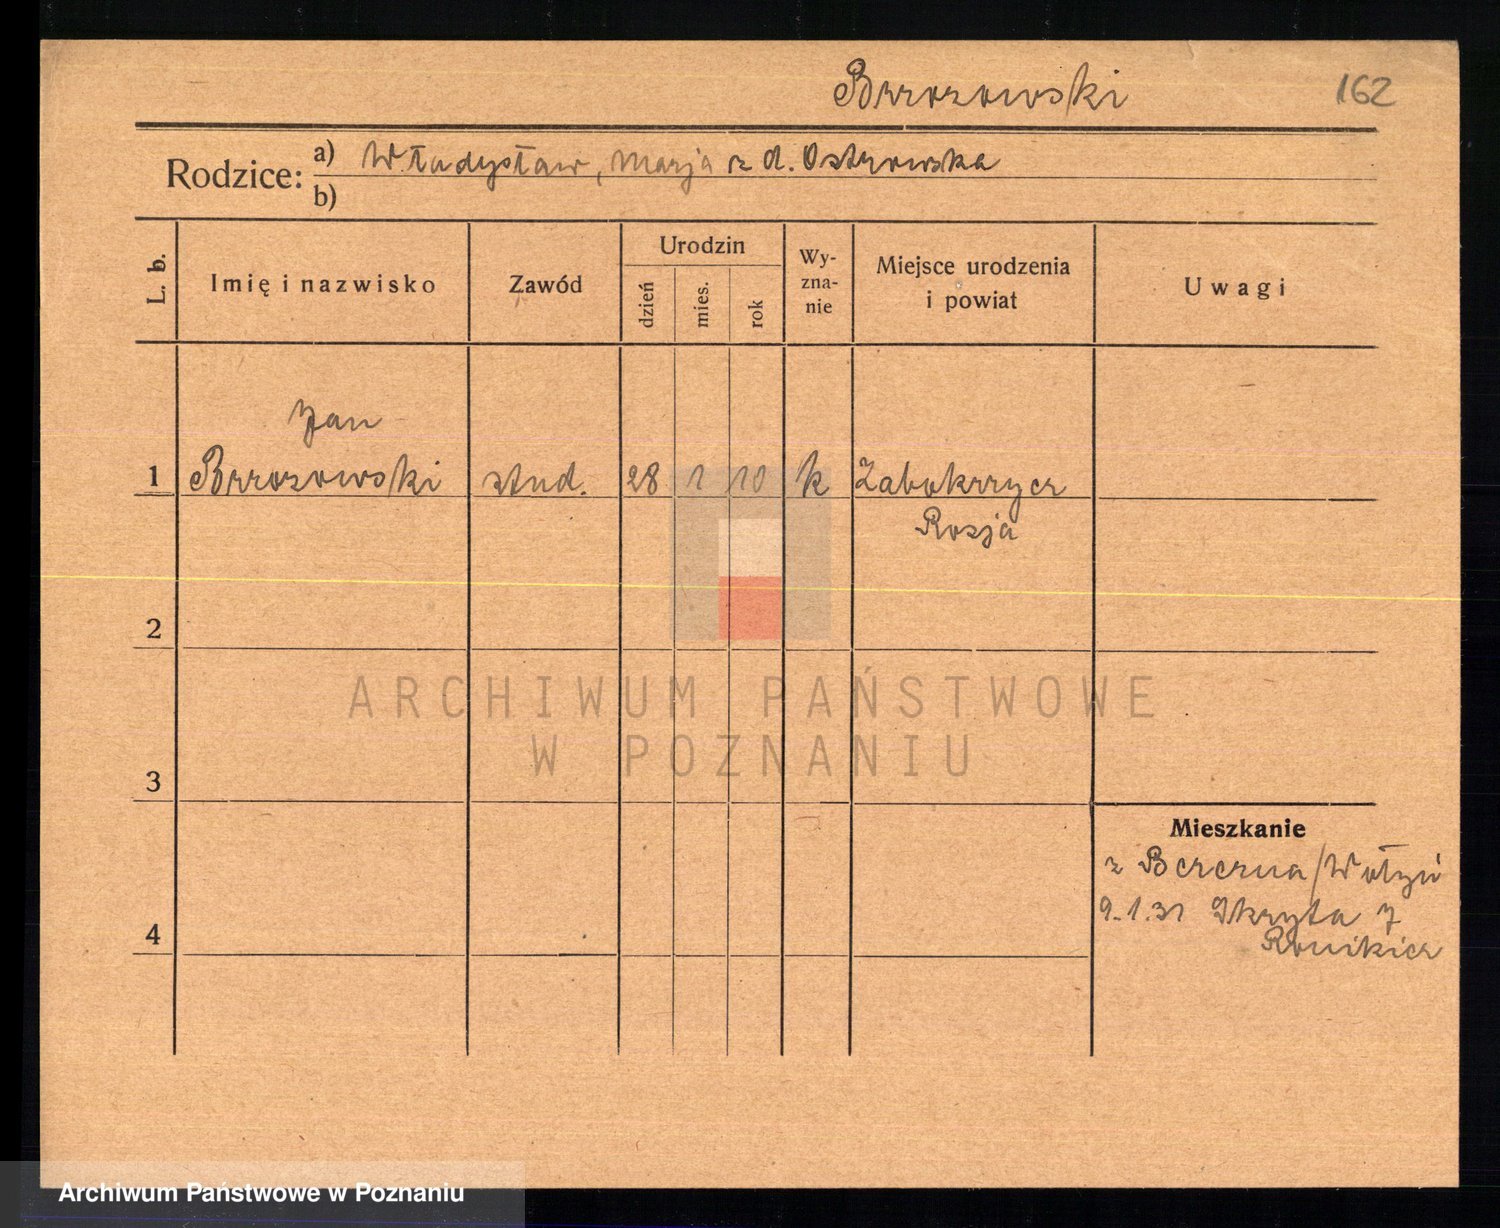 Brzozowski 162
Rodzice: a) Władysław, Marja z d. Ostrowska
b)
L. b. Imię i nazwisko Zawód Urodzin dzień mies. rok Wy-zna-nie Miejsce urodzenia i powiat Uwagi
Jan
1 Brzozowski stud. 28 1 10 k Zabokrzycz
Rosja
2
ARCHIWUM PAŃSTWOWE
W POZNANIU
3
Mieszkanie
z Berezna/Wołyń
9.1.31 Skryta 7
4
Ronikier
Archiwum Państwowe w Poznaniu